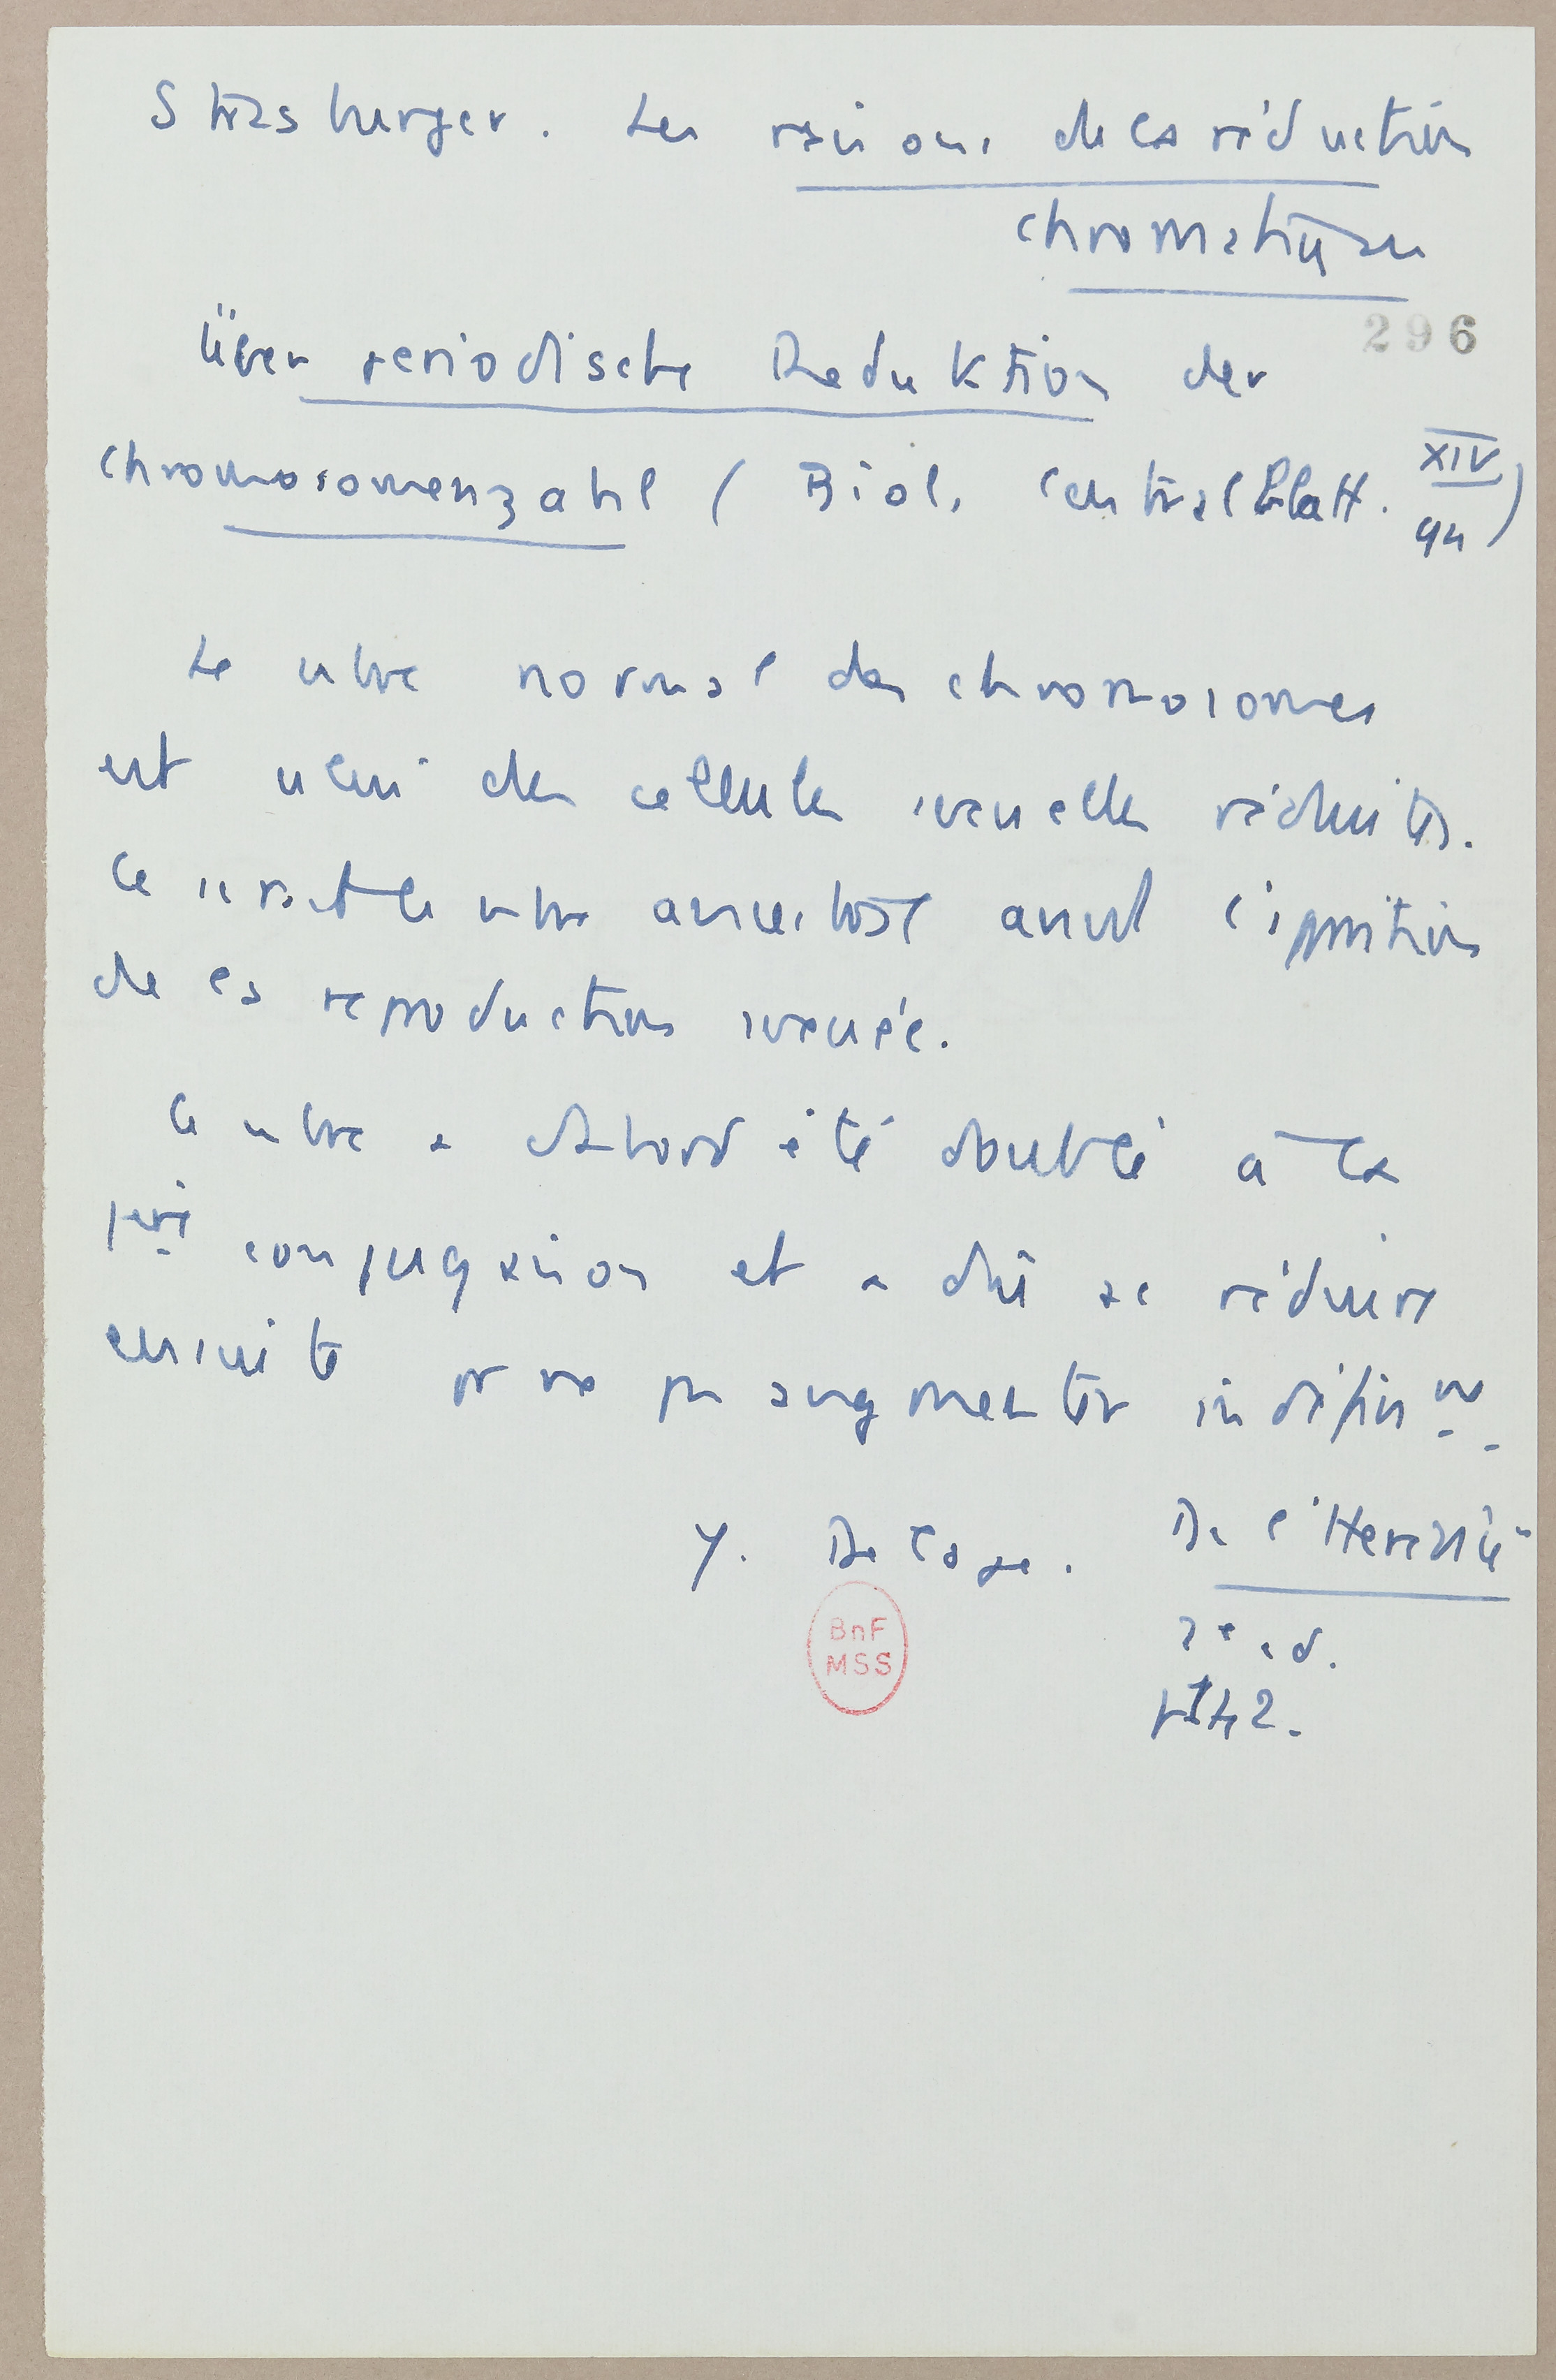 Strasburger. Les raisons de la réduction
chromatique
296
Über periodische Reduktion der
chromosomenzahl ( Biol. Centralblatt. XIV
94 )
Le nbre normal des chromosomes
est celui des cellules sexuelles réduites.
Ce serait le nbre ancestral avant l'apparition
de la reproduction sexuée.
Ce nbre a d'abord été doublé à la
1ere conjugaison et a dû se réduire
ensuite pr ne pas augmenter indéfinmt.
Y. Delage. De l'Heredité
2e ed.
BnF
MSS